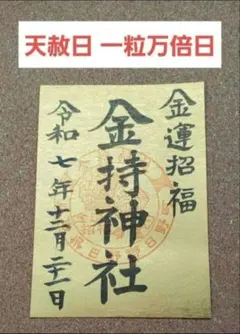 天赦日 一粒万倍日
金運招福
金持神社
令和七年十二月二十一日